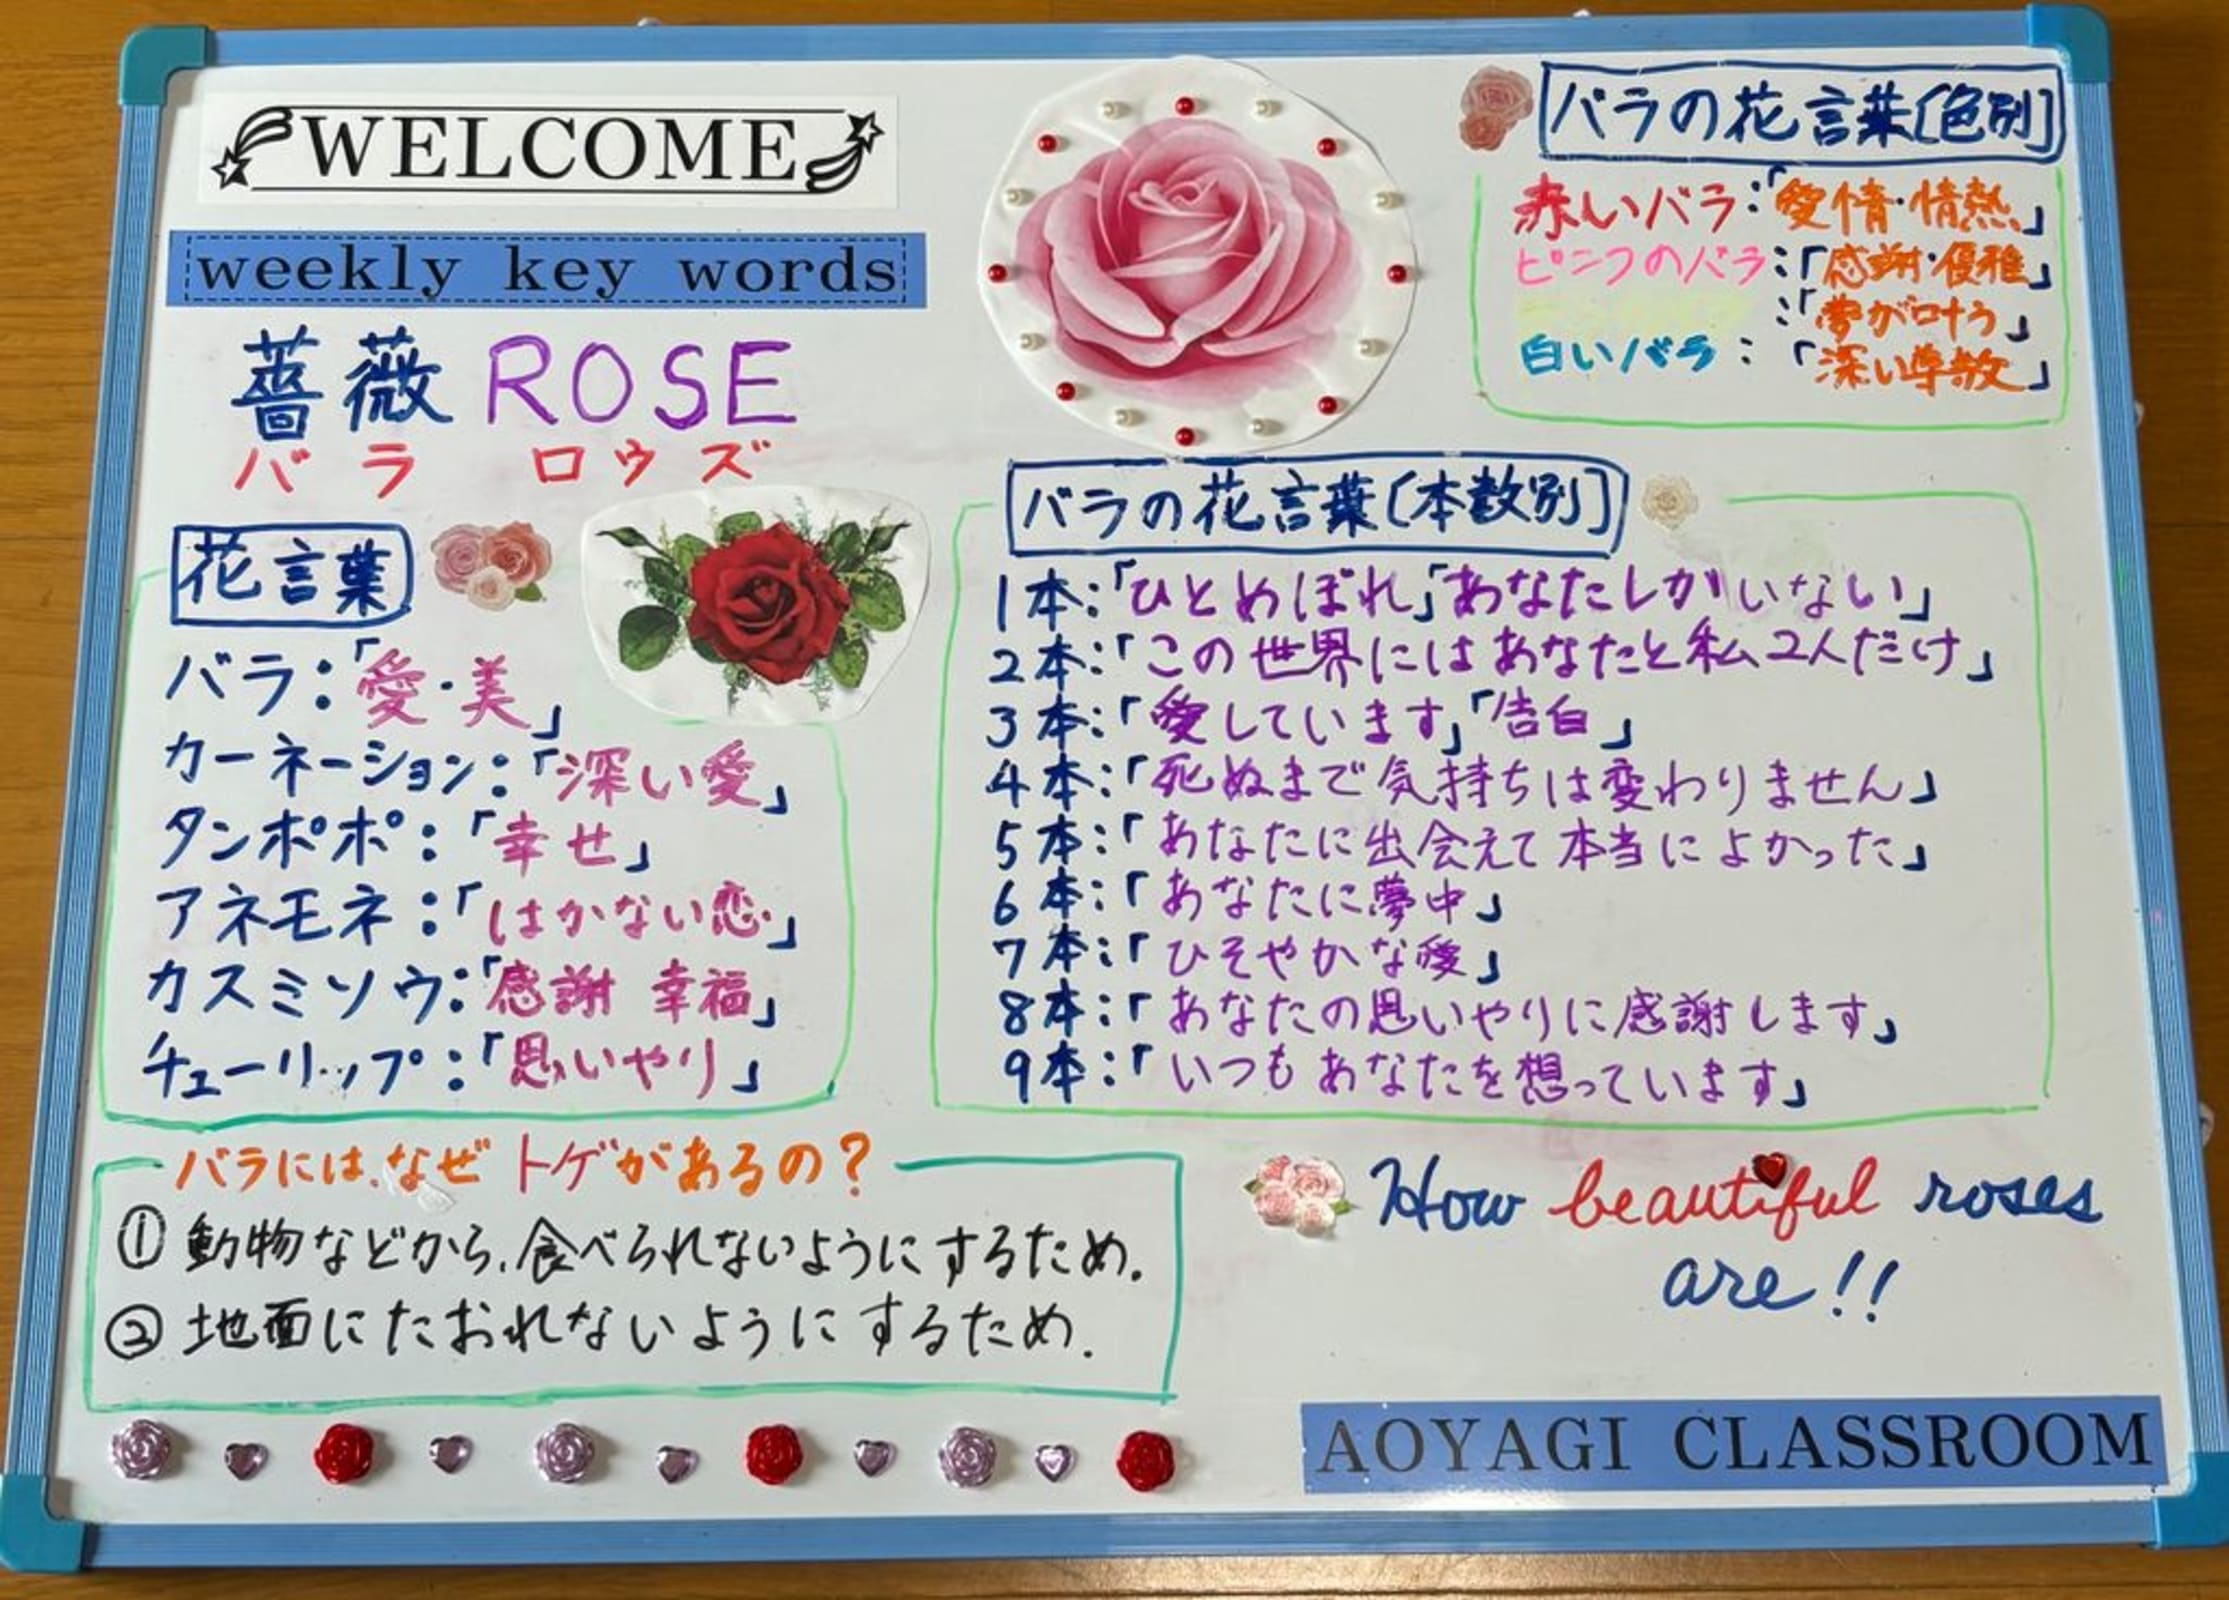 WELCOME
weekly key words
薔薇 ROSE
バラ ロウズ
花言葉
バラ:「愛・美」
カーネーション:「深い愛」
タンポポ:「幸せ」
アネモネ:「はかない恋」
カスミソウ:「感謝 幸福」
チューリップ:「思いやり」
バラの花言葉[色別]
赤いバラ:「愛情・情熱」
ピンクのバラ:「感謝・優雅」
:「夢が叶う」
白いバラ:「深い尊敬」
バラの花言葉[本数別]
1本:「ひとめぼれ」「あなたしかいない」
2本:「この世界にはあなたと私2人だけ」
3本:「愛しています」「告白」
4本:「死ぬまで気持ちは変わりません」
5本:「あなたに出会えて本当によかった」
6本:「あなたに夢中」
7本:「ひそやかな愛」
8本:「あなたの思いやりに感謝します」
9本:「いつもあなたを想っています」
バラには、なぜトゲがあるの?
① 動物などから、食べられないようにするため.
② 地面にたおれないようにするため.
How beautiful roses
are!!
AOYAGI CLASSROOM